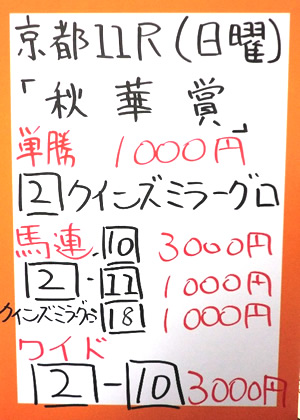 京都11R(日曜)
「秋華賞」
単勝 1000円
2 クインズミラーグロ
馬連 10 3000円
2 - 11 1000円
クインズミラーグロ 18 1000円
ワイド
2 - 10 3000円